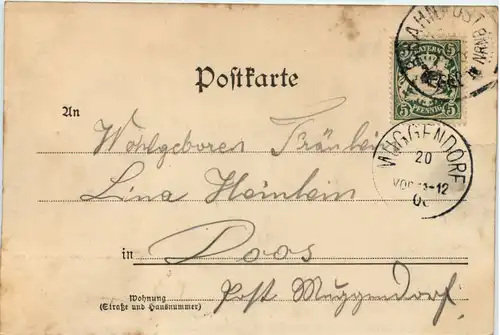 BAHNPOST
BAYERN
5 5
PFENNIG
Postkarte
An
MUGGENDORF
20
12
Wohlgeboren Fräulein
Lina Heinlein
in Doos
Post Muggendorf.
Wohnung
(Straße und Hausnummer)